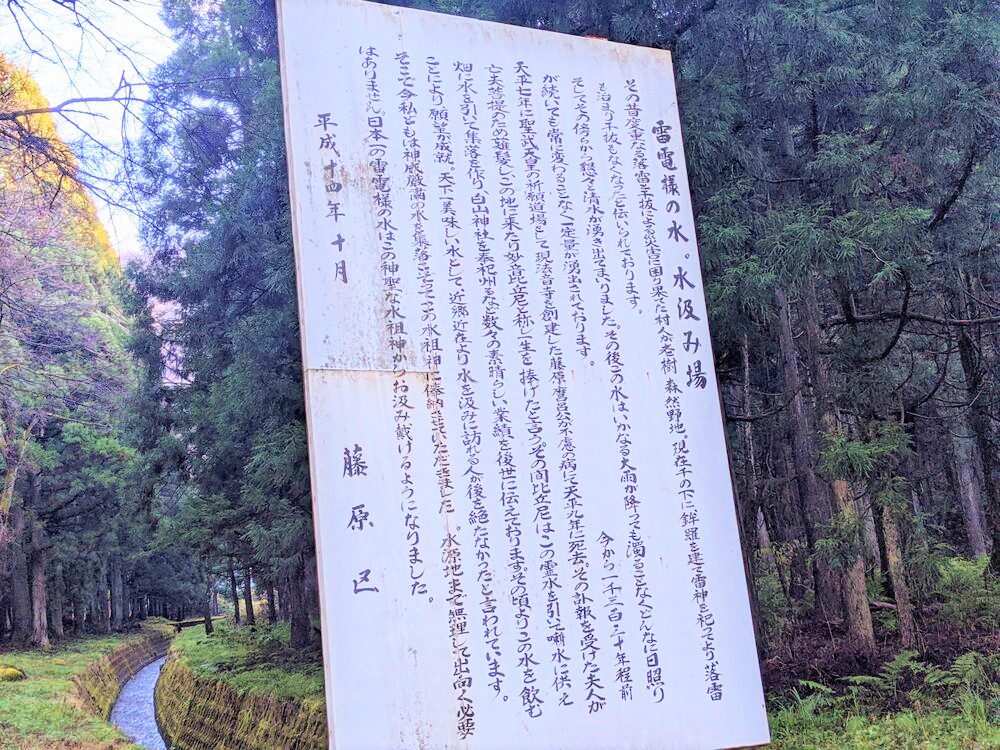 雷電様の水。水汲み場
その昔度重なる落雷干抜による災害に困り果てた村人が老樹 森然野地。現在千の下に鉾羅を建て雷神を祀ってより落雷
も治まり干抜もなくなったと伝いわれております。
そしてその傍らから懇々と清水が湧き出てまいりました。その後この水はいかなる大雨が降っても濁ることなくどんなに日照り
が続いても常に変わることなく一定量が湧出されております。
今から一千三百・三十年程前
天平七年に聖武天皇の祈願道場として現法音寺を創建した藤原麿呂公が不慮の病にて天平九年に死去。その訃報を受けた夫人が
亡夫菩提のため雉髪しこの地に来たり妙音比丘尼と称し一生を捧げたと言うその間比丘尼はこの霊水を引いて噺水に供え
畑に水を引いて集落を作り、白山神社を奉祀するなど数多の素晴らしい業績を後世に伝えております。その頃よりこの水を飲む
ことにより願望が成就。天下一美味しい水として、近郷近在より水を汲みに訪れる人が後を絶たなかったと言われています。
そこで今私どもは神威厳高の水を集落こぞってこの水祖神に俸納させていただきました。水源地まで無理して出向く必要
はありません日本一の雷電様の水はこの神聖な水祖神からお汲み戴けるようになりました。
平成十四年十月
藤原区